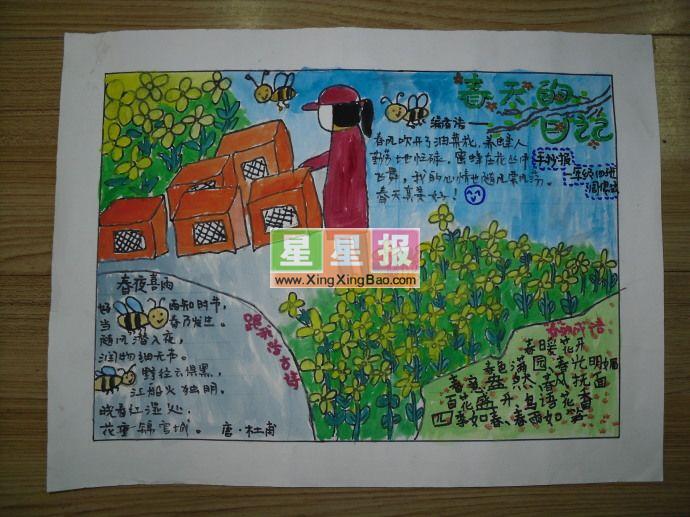 春天的
日记
编者语——
春风吹开了油菜花，养蜂人
勤劳地忙碌，蜜蜂在花丛中
飞舞，我的心情也随风荡
春天真美好！
手抄报
一年级
星星报
www.XingXingBao.com
春夜喜雨
好雨知时节，
当春乃发生。
随风潜入夜，
润物细无声。
野径云俱黑，
江船火独明。
晓看红湿处，
花重锦官城。
唐·杜甫
跟我学古诗
春的成语
春日暖花开
春色满园、春光明媚
春意盎然、春风抚面
百花盛开、鸟语花香
四季如春、春雨如